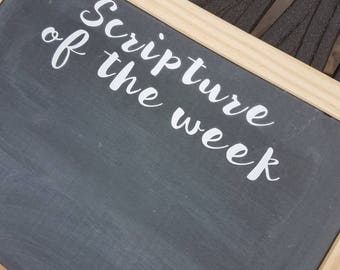 Scripture
of the week